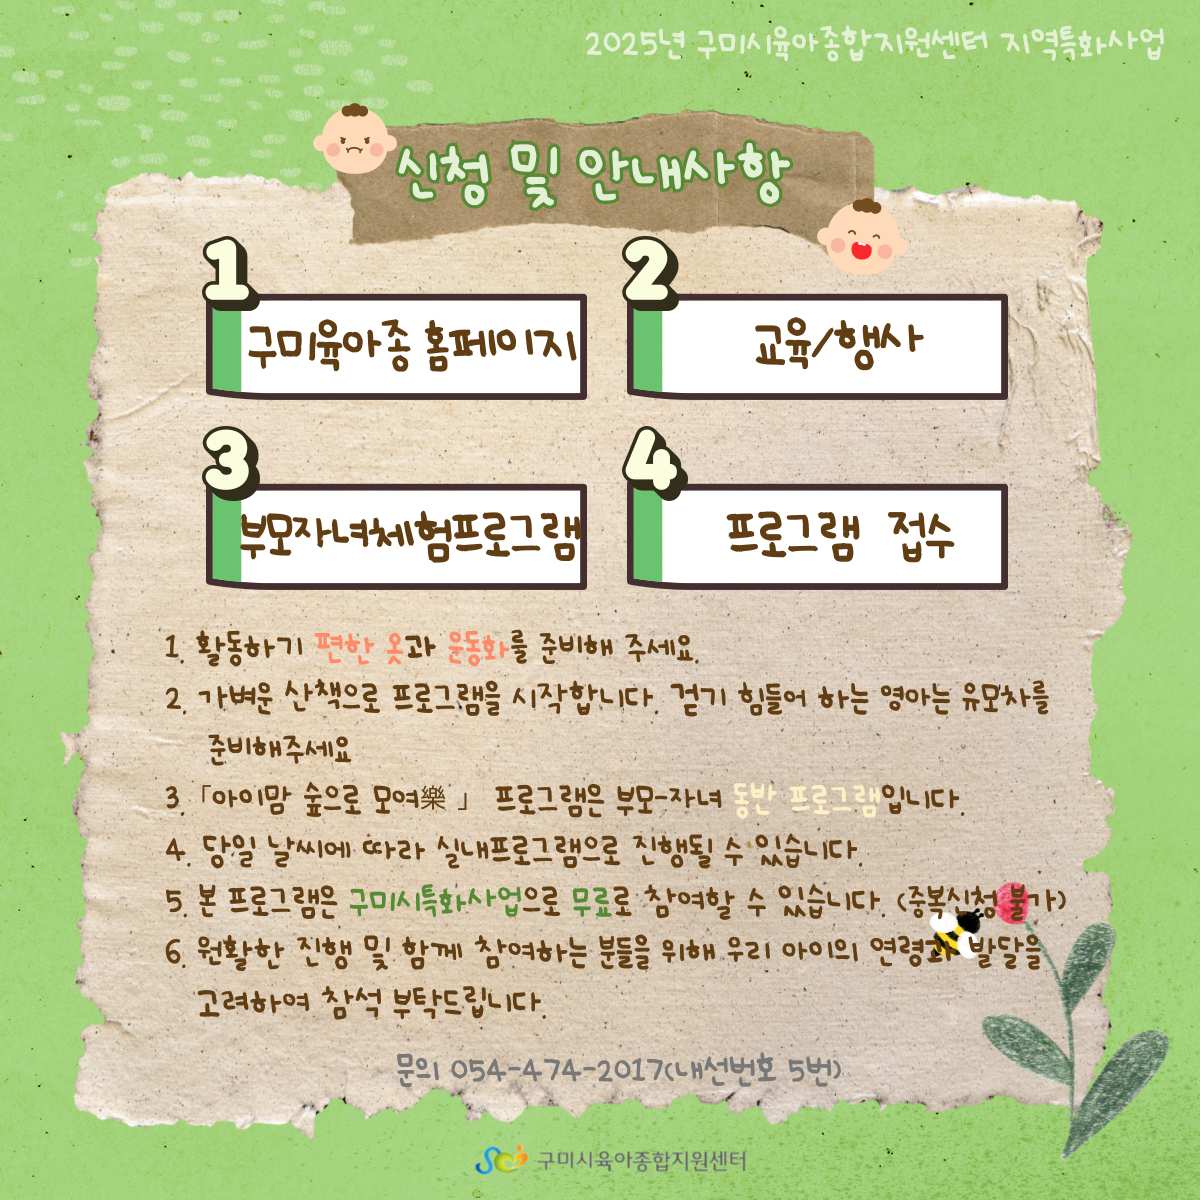 2025년 구미시육아종합지원센터 지역특화사업
신청 및 안내사항
1
구미육아종 홈페이지
2
교육/행사
3
부모자녀체험프로그램
4
프로그램 접수
1. 활동하기 편한 옷과 운동화를 준비해 주세요.
2. 가벼운 산책으로 프로그램을 시작합니다. 걷기 힘들어 하는 영아는 유모차를
준비해주세요
3. 「아이맘 숲으로 모여樂 」 프로그램은 부모-자녀 동반 프로그램입니다.
4. 당일 날씨에 따라 실내프로그램으로 진행될 수 있습니다.
5. 본 프로그램은 구미시특화사업으로 무료로 참여할 수 있습니다. (중복신청 불가)
6. 원활한 진행 및 함께 참여하는 분들을 위해 우리 아이의 연령과 발달을
고려하여 참석 부탁드립니다.
문의 054-474-2017(내선번호 5번)
구미시육아종합지원센터